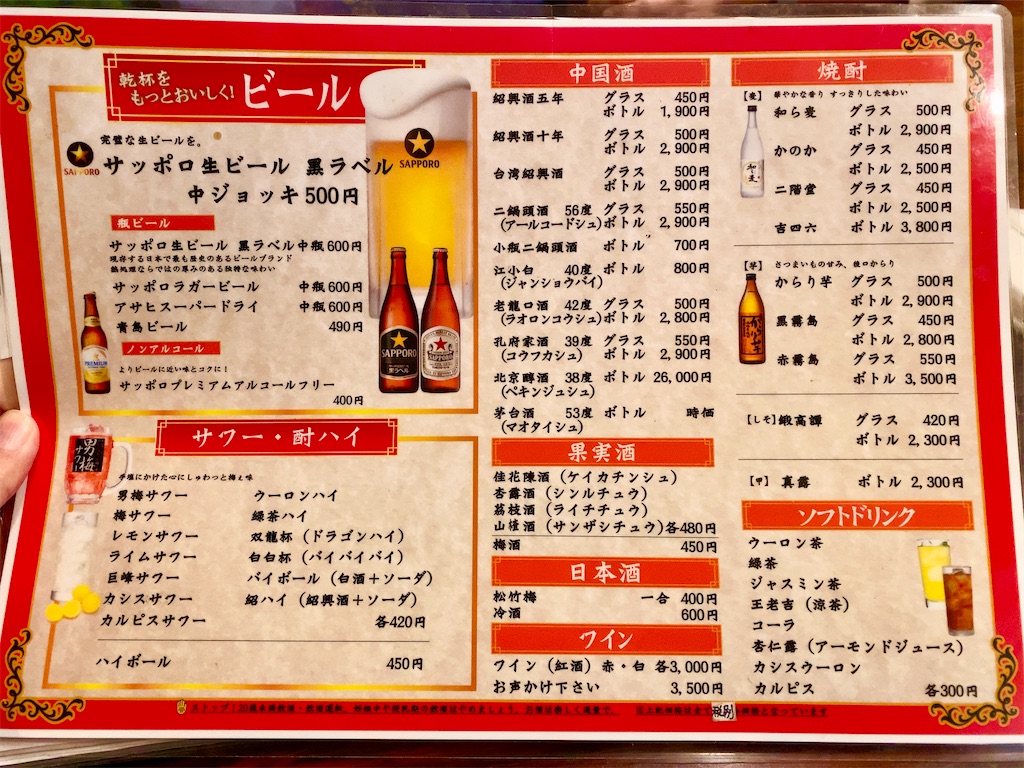 乾杯を
もっとおいしく!
ビール
完璧な生ビールを。
SAPPORO
サッポロ生ビール 黒ラベル
中ジョッキ 500円
SAPPORO
瓶ビール
サッポロ生ビール 黒ラベル 中瓶 600円
現存する日本で最も歴史のあるビールブランド
熱処理ならではの厚みのある独特な味わい
サッポロラガービール 中瓶 600円
アサヒスーパードライ 中瓶 600円
青島ビール 490円
ノンアルコール
よりビールに近い味とコクに!
サッポロプレミアムアルコールフリー
400円
PREMIUM
SAPPORO
黒ラベル
サワー・酎ハイ
男梅
サワー
手塩にかけた心にしゅわっと梅ぇ味
男梅サワー ウーロンハイ
梅サワー 緑茶ハイ
レモンサワー 双龍杯(ドラゴンハイ)
ライムサワー 白白杯(バイバイバイ)
巨峰サワー バイボール(白酒+ソーダ)
カシスサワー 紹ハイ(紹興酒+ソーダ)
カルピスサワー 各420円
ハイボール 450円
中国酒
紹興酒五年 グラス 450円
ボトル 1,900円
紹興酒十年 グラス 500円
ボトル 2,900円
台湾紹興酒 グラス 500円
ボトル 2,900円
二鍋頭酒 56度 グラス 550円
(アールコードシュ) ボトル 2,900円
小瓶二鍋頭酒 ボトル 700円
江小白 40度 ボトル 800円
(ジャンショウバイ)
老龍口酒 42度 グラス 500円
(ラオロンコウシュ) ボトル 2,800円
孔府家酒 39度 グラス 500円
(コウフカシュ) ボトル 2,900円
北京醇酒 38度 ボトル 26,000円
(ペキンジュシュ)
茅台酒 53度 ボトル 時価
(マオタイシュ)
果実酒
佳花陳酒(ケイカチンシュ)
杏露酒(シンルチュウ)
茘枝酒(ライチチュウ)
山楂酒(サンザシチュウ) 各480円
梅酒 450円
日本酒
松竹梅 一合 400円
冷酒 600円
ワイン
ワイン(紅酒) 赤・白 各3,000円
お声かけ下さい 3,500円
焼酎
【麦】 華やかな香り すっきりした味わい
和ら麦 グラス 500円
ボトル 2,900円
かのか グラス 450円
ボトル 2,500円
二階堂 グラス 450円
ボトル 2,500円
吉四六 ボトル 3,800円
和ら麦
【芋】 さつまいもの甘み、後口からり
からり芋 グラス 500円
ボトル 2,900円
黒霧島 グラス 450円
ボトル 2,800円
赤霧島 グラス 550円
ボトル 3,500円
からり芋
【しそ】鍛高譚 グラス 420円
ボトル 2,300円
【甲】 真露 ボトル 2,300円
ソフトドリンク
ウーロン茶
緑茶
ジャスミン茶
王老吉(涼茶)
コーラ
杏仁露(アーモンドジュース)
カシスウーロン
カルピス 各300円
ストップ!20歳未満飲酒・飲酒運転。妊娠中や授乳期の飲酒はやめましょう。お酒は楽しく適量で。 ※上記価格は全て税別の価格となっています